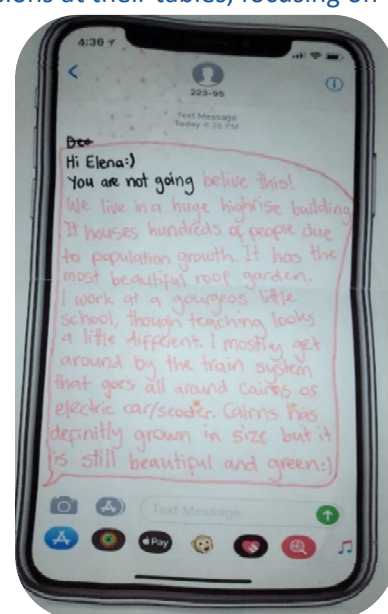 sions at their tables, focusing on
4:36
223-95
Text Message
Today 4:36 PM
Dea
Hi Elena:)
You are not going belive this!
We live in a huge highrise building
It houses hundreds of people due
to population growth. It has the
most beautiful roof garden.
I work at a gourgeos little
school, though teaching looks
a little different. I mostly get
around by the train system
that goes all around Cairns or
electric car/scooter. Cairns has
definitly grown in size but it
is still beautiful and green:)
Text Message
Pay